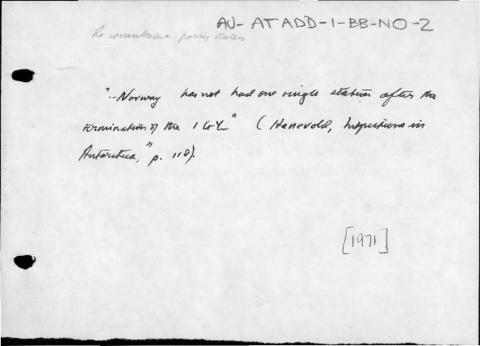 AU-ATADD-1-BB-NO-2
"..Norway has not had one single station after the
termination of the IGY" (Hanevold, Inspections in
Antarctica," p. 110).
[1971]